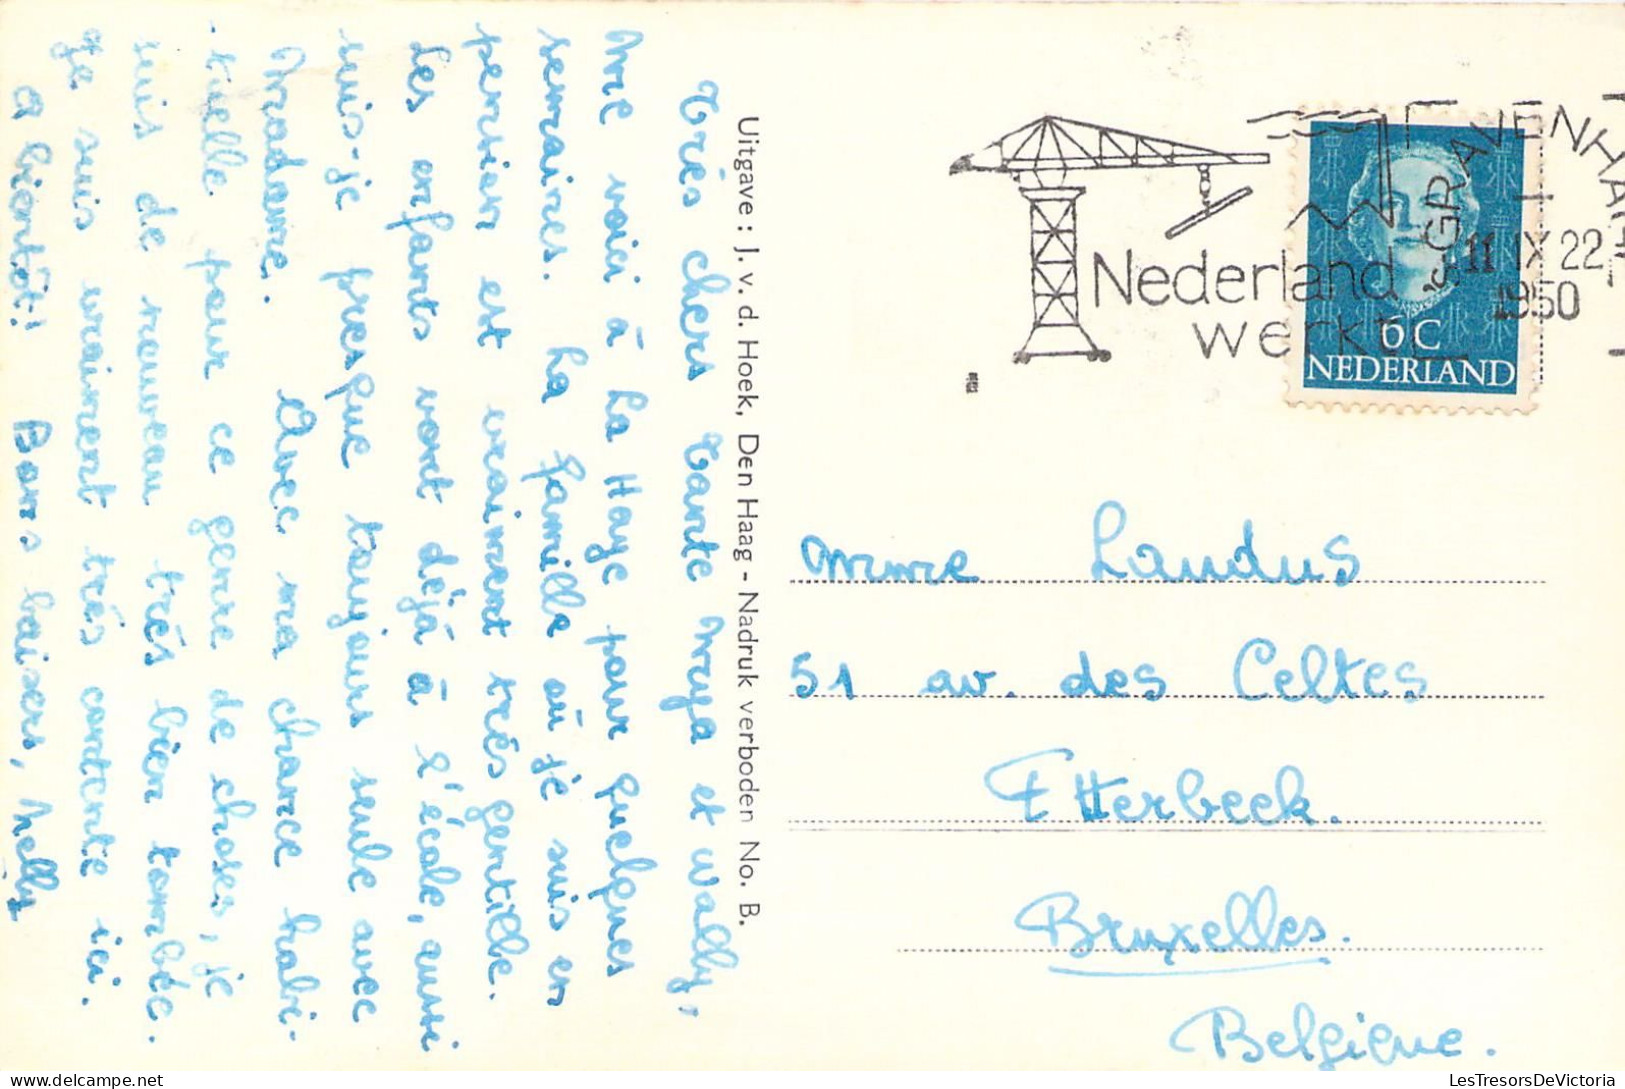 Très chers Tante Maya et Wally,
Me voici à La Haye pour quelques
semaines. La famille où je suis en
pension est vraiment très gentille.
Les enfants vont déjà à l'école, aussi
suis-je presque toujours seule avec
Madame. Avec ma chance habi-
-tuelle pour ce genre de choses, je
suis de nouveau très bien tombée.
Je suis vraiment très contente ici.
A bientôt! Bons baisers, Nelly
Uitgave : J. v. d. Hoek, Den Haag - Nadruk verboden No. B.
Nederland
werkt
'sGRAVENHAGE
11 IX 22
1950
6 C
NEDERLAND
Mme Landus
51 av. des Celtes
Etterbeek.
Bruxelles.
Belgique.
LesTresorsDeVictoria